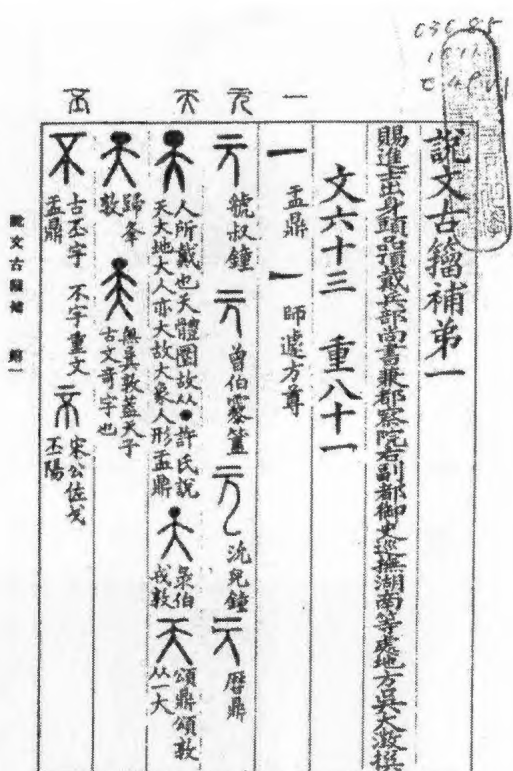 說文古籀補弟一
賜進士出身頭品頂戴兵部尚書兼都察院右副都御史巡撫湖南等處地方吳大澂撰
文六十三 重八十一
一
一 盂鼎 一 師遽方尊
元
元 虢叔鐘 元 曾伯霥簠 元 沇兒鐘 元 曆鼎
天
天 人所戴也天體圜故从●許氏說
天大地大人亦大故大象人形盂鼎
天 彔伯
戎敦
天 頌鼎頌敦
从一大
天 歸夆
敦
天 無㠱敦蓋天子
古文奇字也
丕
不 古丕字 不字重文
盂鼎
不 宋公佐戈
丕陽
說文古籀補